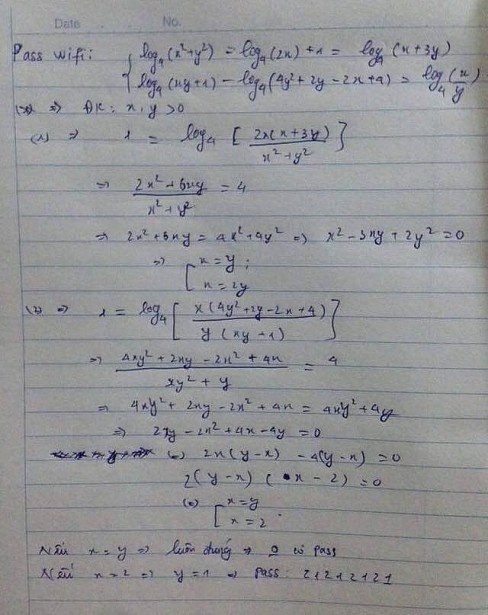 Date No.
Pass wifi: { log₄(x²+y²) = log₄(2x) + 1 = log₄(x+3y)
log₄(xy+1) - log₄(4y²+2y-2x+4) = log₄(x/y)
(*) => ĐK: x, y > 0
(1) => 1 = log₄ [ 2x(x+3y) / x²+y² ]
=> 2x²+6xy / x²+y² = 4
=> 2x²+6xy = 4x²+4y² => x²-3xy+2y²=0
=> [ x=y ;
x=2y
(2) => 1 = log₄ [ x(4y²+2y-2x+4) / y(xy+1) ]
=> 4xy²+2xy-2x²+4x / xy²+y = 4
=> 4xy²+2xy-2x²+4x = 4xy²+4y
=> 2xy-2x²+4x-4y = 0
(=) 2x(y-x) -4(y-x) =0
2(y-x) (x-2) =0
(=) [ x=y
x=2.
Nếu x=y => luôn đúng => 0 có pass
Nếu x=2 => y=1 => Pass: 21212121